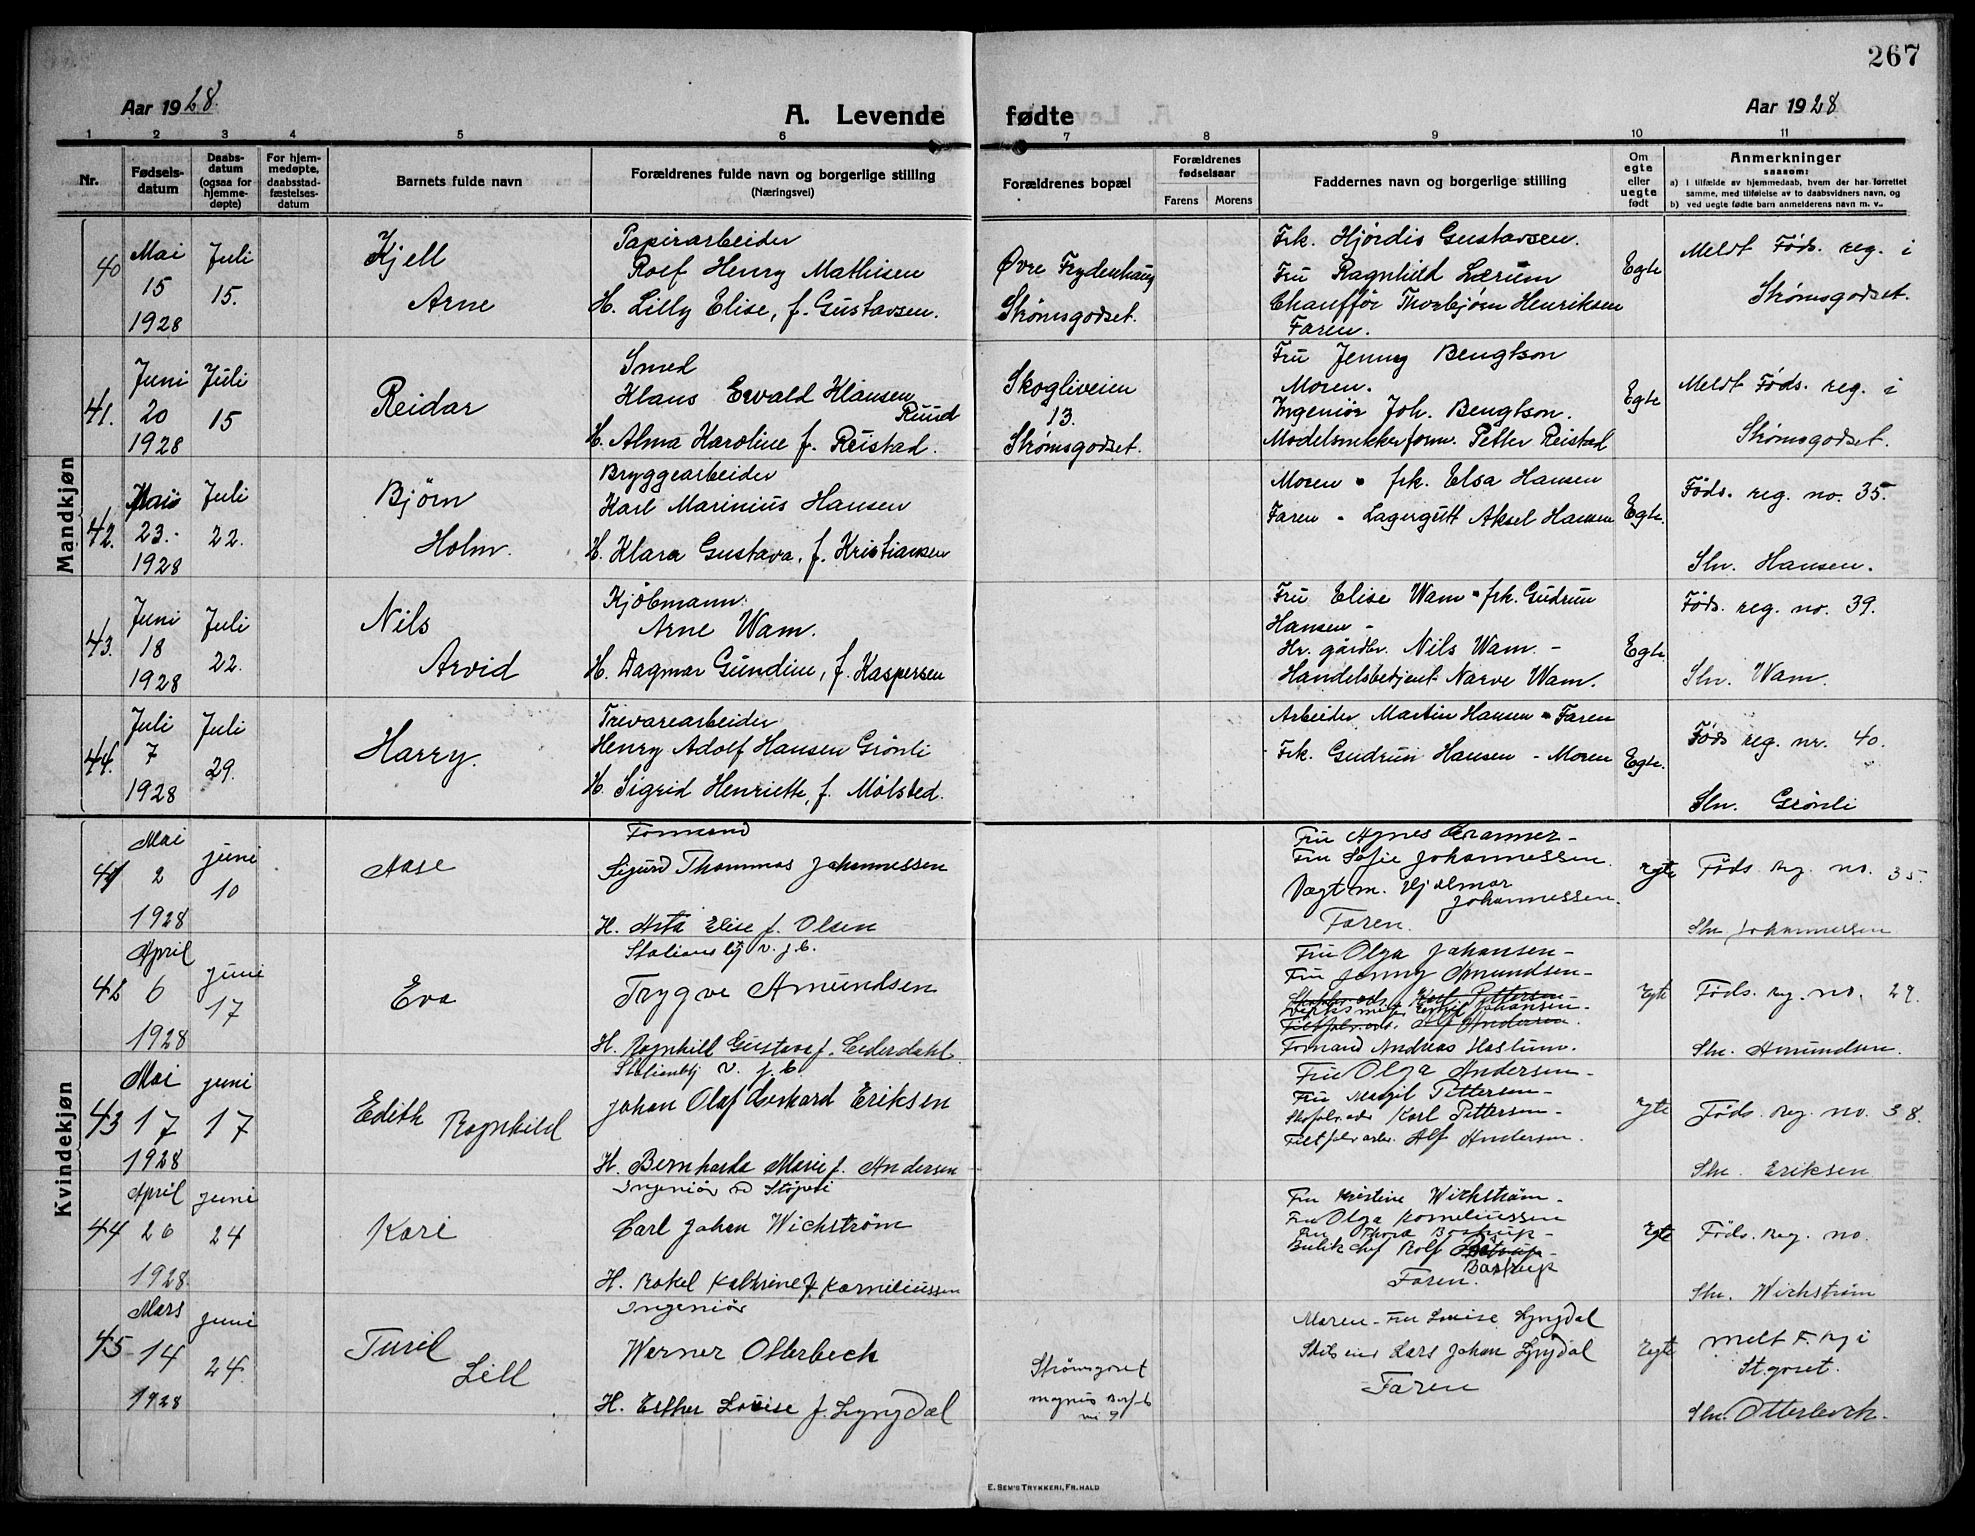 267
Aar 1928.
A. Levende fødte
Aar 1928
1 2 3 4 5 6 7 8 9 10 11
Nr.
Fødsels-
datum
Daabs-
datum
(ogsaa for
hjemme-
døpte)
For hjem-
medøpte,
daabsstad-
fæstelses-
datum
Barnets fulde navn
Forældrenes fulde navn og borgerlige stilling
(Næringsvei)
Forældrenes bopæl
Forældrenes
fødselsaar
Farens Morens
Faddernes navn og borgerlige stilling
Om
egte
eller
uegte
født
Anmerkninger
saasom:
a) I tilfælde av hjemmedaab, hvem der har forrettet
samme, med tilføielse av to daabsvidners navn, og
b) ved uegte fødte barn anmelderens navn m. v..
Mandkjøn
40
Mai
15
1928
Juli
15.
Kjell
Arne
Papirarbeider
Rolf Henry Mathisen
H. Lilly Elise, f. Gustavsen.
Øvre Frydenhaug
Strømsgodset.
Frk. Hjørdis Gustavsen.
Fru Ragnhild Lærum
Chauffør Thorbjørn Henriksen
Faren.
Egte
Meldt Føds. reg. i
Strømsgodset.
41.
Juni
20
1928
Juli
15
Reidar
Smed
Klaus Ewald Klausen
Ruud
H. Alma Karoline f. Reistad.
Skogliveien
13.
Strømsgodset.
Fru Jenny Bengtson
Moren.
Ingeniør Joh. Bengtson.
Modelsnekkerform. Petter Reistad
Egte
Meldt Føds. reg. i
Strømsgodset.
42.
23.
1928
Juli
22.
Bjørn
Holm.
Bryggearbeider
Karl Marinius Hansen
H. Klara Gustava, f. Kristiansen
Moren - frk. Elsa Hansen
Faren - Lagergutt Aksel Hansen
Egte.
Føds. reg. no. 35.
Sln. Hansen.
43.
Juni
18
1928
Juli
22.
Nils
Arvid
Kjøbmann.
Arne Wam.
H. Dagmar Gundine, f. Kaspersen
Fru Elise Wam - frk. Gudrun
Hansen -
Hr. gårdbr. Nils Wam. -
Handelsbetjent Narve Wam.
Egte
Føds. reg. no. 39.
Sln. Wam.
44.
Juli
7
1928
Juli
29.
Harry.
Trevarearbeider
Henry Adolf Hansen Grønli
H. Sigrid Henriette, f. Mølsted.
Arbeider Martin Hansen - Faren
Frk. Gudrun Hansen - Moren
Egte.
Føds reg. nr. 40.
Sln. Grønli
Kvindekjøn
41
Mai
2
1928
juni
10
Aase
Formand
Sigurd Thommas Johannessen
H. Asta Elise f. Olsen
Fru Agnes Kranner -
Fru Sofie Johannessen.
Vagtm. Hjalmar
Johannessen.
Faren.
Egte
Føds. reg. no. 35.
Sln Johannessen
42
April
6
1928
juni
17
Eva
Stationsbtj v. j.b.
Trygve Amundsen
H. Ragnhill Gustava f. Lederdahl.
Fru Olga Johansen -
Fru Jenny Amundsen -
Karl Pettersen -
Johansen -
Alf Andersen.
Formand Andreas Haslum.
Egte
Føds. reg. no. 29.
Sln. Amundsen.
43
Mai
17
1928
juni
17
Edith Ragnhild
Stationsbtj v. j.b.
Johan Olaf Gerhard Eriksen
H. Bernharda Marie f. Andersen
Fru Olga Andersen -
Fru Margit Pettersen -
Karl Pettersen -
Alf Andersen.
Egte
Føds. reg. no. 38.
Sln. Eriksen
44
April
26
1928
juni
24
Kari
Ingeniør
Carl Johan Wichstrøm
H. Rakel Kathrine f. Korneliussen
Fru Kristine Wichstrøm -
Fru Olga Korneliussen
Fru Thora Bastrup -
Rolf
Bastrup
Faren.
Egte
Føds. reg. no.
Sln. Wichstrøm
45
Mars
14
1928
juni
24.
Turil
Lill
Ingeniør
Werner Otterbech
H. Esther Louise f. Lyngdal
Strømsgoset
Moren - Fru Louise Lyngdal
Lars Johan Lyngdal
Faren
Egte
melt F. reg i
St.goset.
Sln. Otterbech.
E. SEM'S TRYKKERI, FR.HALD